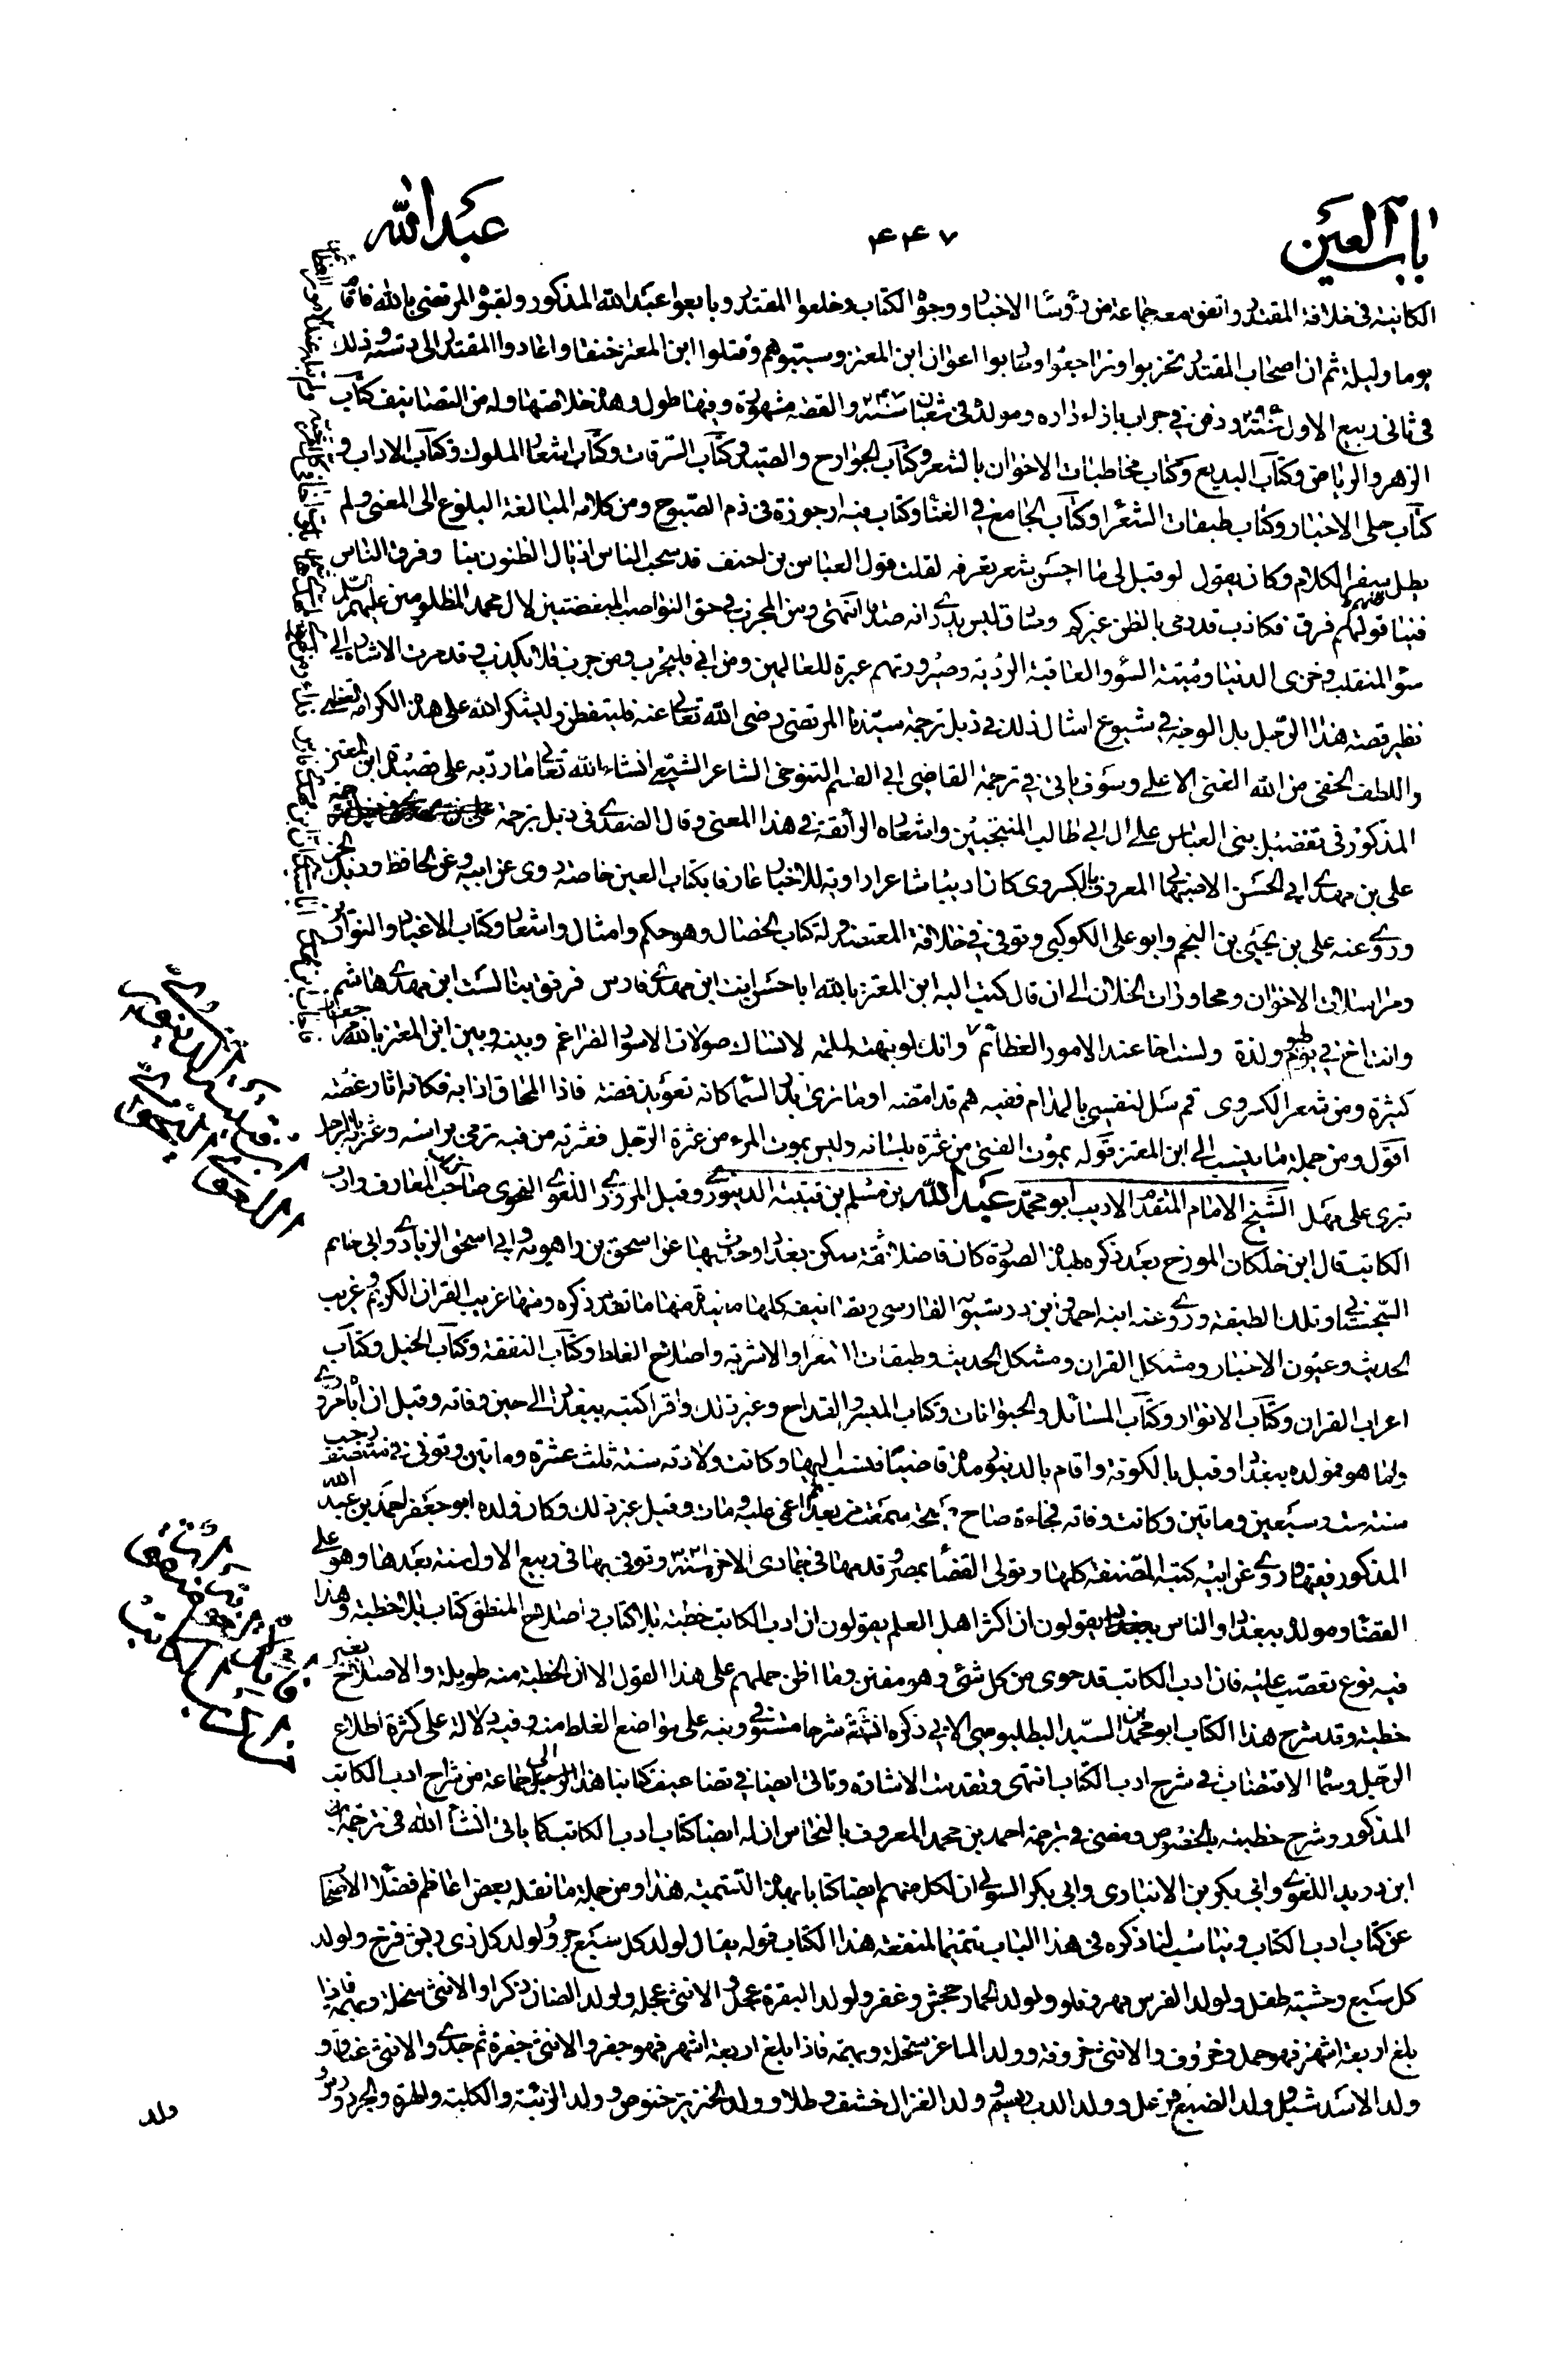 باب العين
۴۴۷
عبدالله
الكائنة فى خلافة المقتدر واتفق معه جماعة من رؤساء الاجناد ووجوه الكتاب فخلعوا المقتدر وبايعوا عبدالله المذكور ولقبوه المرتضى بالله فاقام
يوما وليلة ثم ان اصحاب المقتدر تحزبوا وتراجعوا وحاربوا اعوان ابن المعتز وشتتوهم وقتلوا ابن المعتز خنقا واعادوا المقتدر الى دسته وذلك
فى ثانى ربيع الاول سنة ودفن فى خراب بازاء داره ومولده فى شعبان سنة ۲۴۷ والقصة مشهورة وفيها طول وهذه خلاصتها وله من التصانيف كتاب
الزهر والرياض وكتاب البديع وكتاب مخاطبات الاخوان بالشعر وكتاب الجوارح والصيد وكتاب السرقات وكتاب اشعار الملوك وكتاب الاداب و
كتاب حلى الاخبار وكتاب طبقات الشعراء وكتاب الجامع فى الغناء وكتاب فيه ارجوزة فى ذم الصبوح ومن كلامه المبالغة البلوغ الى المعنى ولم
يطل سفر الكلام وكان يقول لو قيل لى ما احسن شعر تعرفه لقلت قول العباس بن احنف قد سحب الناس اذيال الظنون بنا وفرق الناس
فينا قولهم فرقا فكاذب قد رمى بالظن غيركم وصادق ليس يدرى انه صدقا انتهى ومن المجرب فى حق النواصب المبغضين لال محمد المظلومين عليهم السلم
سوء المنقلب وخزى الدنيا وميتة السوء والعاقبة الردية وصيرورتهم عبرة للعالمين ومن ابى فليجرب ومن جرب فلا يكذب وقد مرت الاشارة الى
نظير قصة هذا الرجل بل الوجه فى شيوع امثال ذلك فى ذيل ترجمة سيدنا المرتضى رضى الله تعالى عنه فليتفطن وليشكر الله على هذه الكرامة العظمى
واللطف الخفى من الله الغنى الاعلى وسوف ياتى فى ترجمة القاضى ابى القسم التنوخى الشاعر الشيعى انشاء الله تعالى ما رد به على قصيدة ابن المعتز
المذكور فى تفضيل بنى العباس على ال ابى طالب المنتجبين واشعاره الرائقة فى هذا المعنى وقال الصفدى فى ذيل ترجمة
على بن مهدى ابى الحسن الاصبهانى المعروف بالكسروى كان اديبا شاعرا راوية للاخبار عارفا بكتاب العين خاصة روى عن ابيه وعن الجاحظ وديك الجن
وروى عنه على بن يحيى بن المنجم وابو على الكوكبى وتوفى فى خلافة المعتضد وله كتاب الخصال وهو حكم وامثال واشعار وكتاب الاعياد والنواريز
ومراسلات الاخوان ومحاورات الخلان الى ان قال كتب اليه ابن المعتز بالله ابا حسن انت ابن مهدى فارس فرفقا بنا لست ابن مهدى هاشم
وانت اخ فى يوم لهو ولذة ولست اخا عند الامور العظائم وانك لو نبهت لملمة لانساك صولات الاسود الضراغم وبينه وبين ابن المعتز بالله مراجعات
كثيرة ومن شعر الكسروى قم سل لنفسى بالمدام ففيه هم قد امضه اوما ترى بدر السما كانه تعويذ فضة فاذا المحاق اذابه فكانه اثار عضه
اقول ومن جملة ما ينسب الى ابن المعتز قوله يموت الفتى من عثرة بلسانه وليس يموت المرء من عثرة الرجل فعثرته من فيه ترمى براسه وعثرته بالرجل
تبرى على مهل الشيخ الامام المتقدم الاديب ابو محمد عبدالله بن مسلم بن قتيبة الدينورى وقيل المروزى اللغوى النحوى صاحب المعارف وادب
الكاتب قال ابن خلكان المورخ بعد ذكره بهذه الصورة كان فاضلا ثقة سكن بغداد وحدث بها عن اسحق بن راهويه وابى اسحق الزيادى وابى حاتم
السجستانى وتلك الطبقة وروى عنه ابنه احمد وابن درستويه الفارسى وتصانيفه كلها مفيدة منها ما تقدم ذكره ومنها غريب القران الكريم وغريب
الحديث وعيون الاخبار ومشكل القران ومشكل الحديث وطبقات الشعراء والاشربة واصلاح الغلط وكتاب التفقة وكتاب الخيل وكتاب
اعراب القران وكتاب الانوار وكتاب المسائل والجوابات وكتاب الميسر والقداح وغير ذلك واقرا كتبه ببغداد الى حين وفاته وقيل ان اباه مروزى
واما هو فمولده ببغداد وقيل بالكوفة واقام بالدينور مدة قاضيا فنسب اليها وكانت ولادته سنة ثلث عشرة وماتين وتوفى فى منتصف رجب
سنة ست وسبعين وماتين وكانت وفاته فجاءة صاح صيحة سمعت من بعيد ثم اغمى عليه ومات وقيل غير ذلك وكان ولده ابو جعفر احمد بن عبد الله
المذكور فقيها وروى عن ابيه كتبه المصنفة كلها وتولى القضاء بمصر قدمها فى جمادى الاخرة سنة ۳۲۱ وتوفى بها فى ربيع الاول سنة بعدها وهو على
القضاء ومولده ببغداد والناس يقولون ان اكثر اهل العلم يقولون ان ادب الكاتب خطبة بلا كتاب واصلاح المنطق كتاب بلا خطبة وهذا
فيه نوع تعصب عليه فان ادب الكاتب قد حوى من كل شئ وهو مفنن وما اظن حملهم على هذا القول الا ان الخطبة منه طويلة والاصلاح بغير
خطبة وقد شرح هذا الكتاب ابو محمد بن السيد البطليوسى الاتى ذكره انشاءالله شرحا مستوفى ونبه على مواضع الغلط منه وفيه دلالة على كثرة اطلاع
الرجل وسماه الاقتضاب فى شرح ادب الكتاب انتهى وتقدمت الاشارة وتاتى ايضا فى تضاعيف كتابنا هذا الى جماعة من شراح ادب الكاتب
المذكور وشرح خطبته بالخصوص ومضى فى ترجمة احمد بن محمد المعروف بالنحاس ان له ايضا كتاب ادب الكاتب كما ياتى انشاء الله فى ترجمة
ابن دريد اللغوى وابى بكر بن الانبارى وابى بكر الصولى ان لكل منهم ايضا كتابا بهذه التسمية هذا ومن جملة ما نقله بعض اعاظم فضلاء الاصحاب
عن كتاب ادب الكتاب ويناسب لنا ذكره فى هذا الباب تتميما لمنفعة هذا الكتاب قوله يقال لولد كل سبع جرو ولولد كل ذى ريش فرخ ولولد
كل سبع وحشية طفل ولولد الفرس مهر وفلو ولولد الحمار جحش وعفر ولولد البقرة عجل والانثى عجلة ولولد الضان ذكرا او الانثى سخلة وبهمة فاذا
بلغ اربعة اشهر فهو حمل وخروف والانثى خروفة وولد الماعز سخلة وبهمة فاذا بلغ اربعة اشهر فهو جفر والانثى جفرة ثم جدى والانثى عناق و
ولد الاسد شبل وولد الضبع فرعل وولد الدب ديسم وولد الغزال خشف وطلا وولد الخنزير خنوص وولد الذئبة والكلبة والهرة والجرذ درص و
ولد